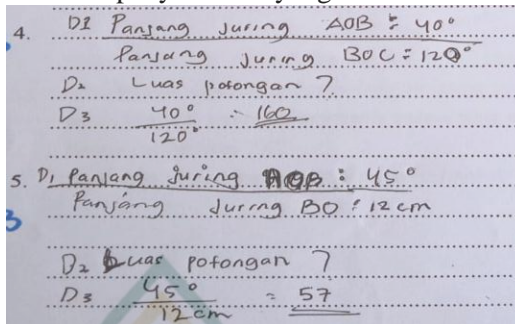 4. D1 Panjang Juring AOB : 40°
Panjang Juring BOC : 120°
D2 Luas potongan ?
D3 40° / 120° = 160
5. D1 Panjang Juring AOB : 45°
Panjang Jurring BO : 12 cm
D2 Luas potongan ?
D3 45° / 12 cm = 57